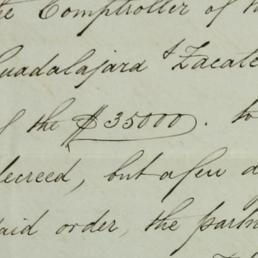 the Comptroller of
Guadalajara & Zacate
the $35000. to
decreed, but a few d
said order, the partn